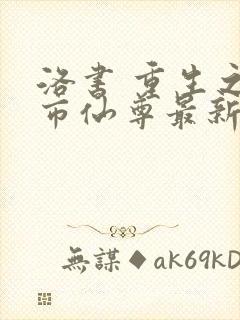 洛书 重生之
市仙尊最新
無謀◆ak69kD